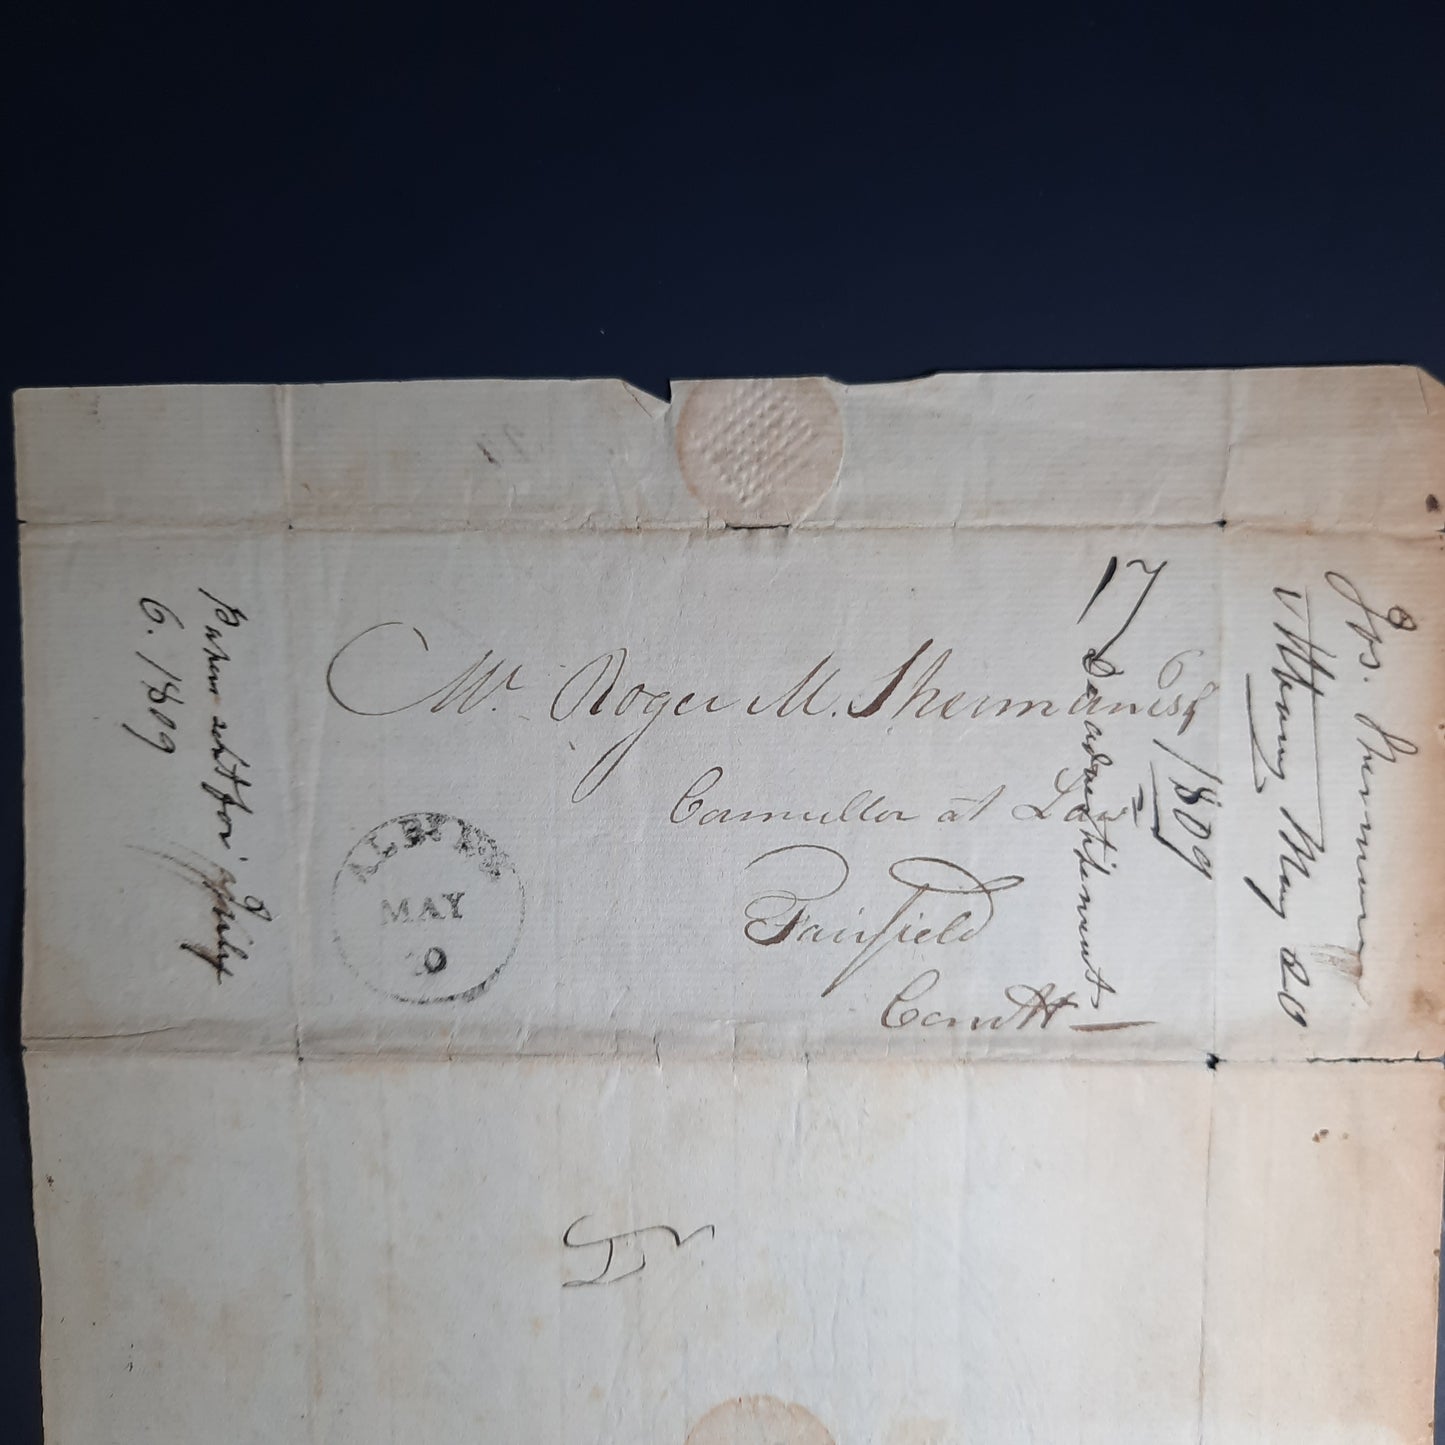 Mr. Roger M. Sherman Esq
Counsellor at Law
Fairfield
Conntt
MAY
17
Jos. Sherman
Albany May 20
1809
sent for July
6. 1809